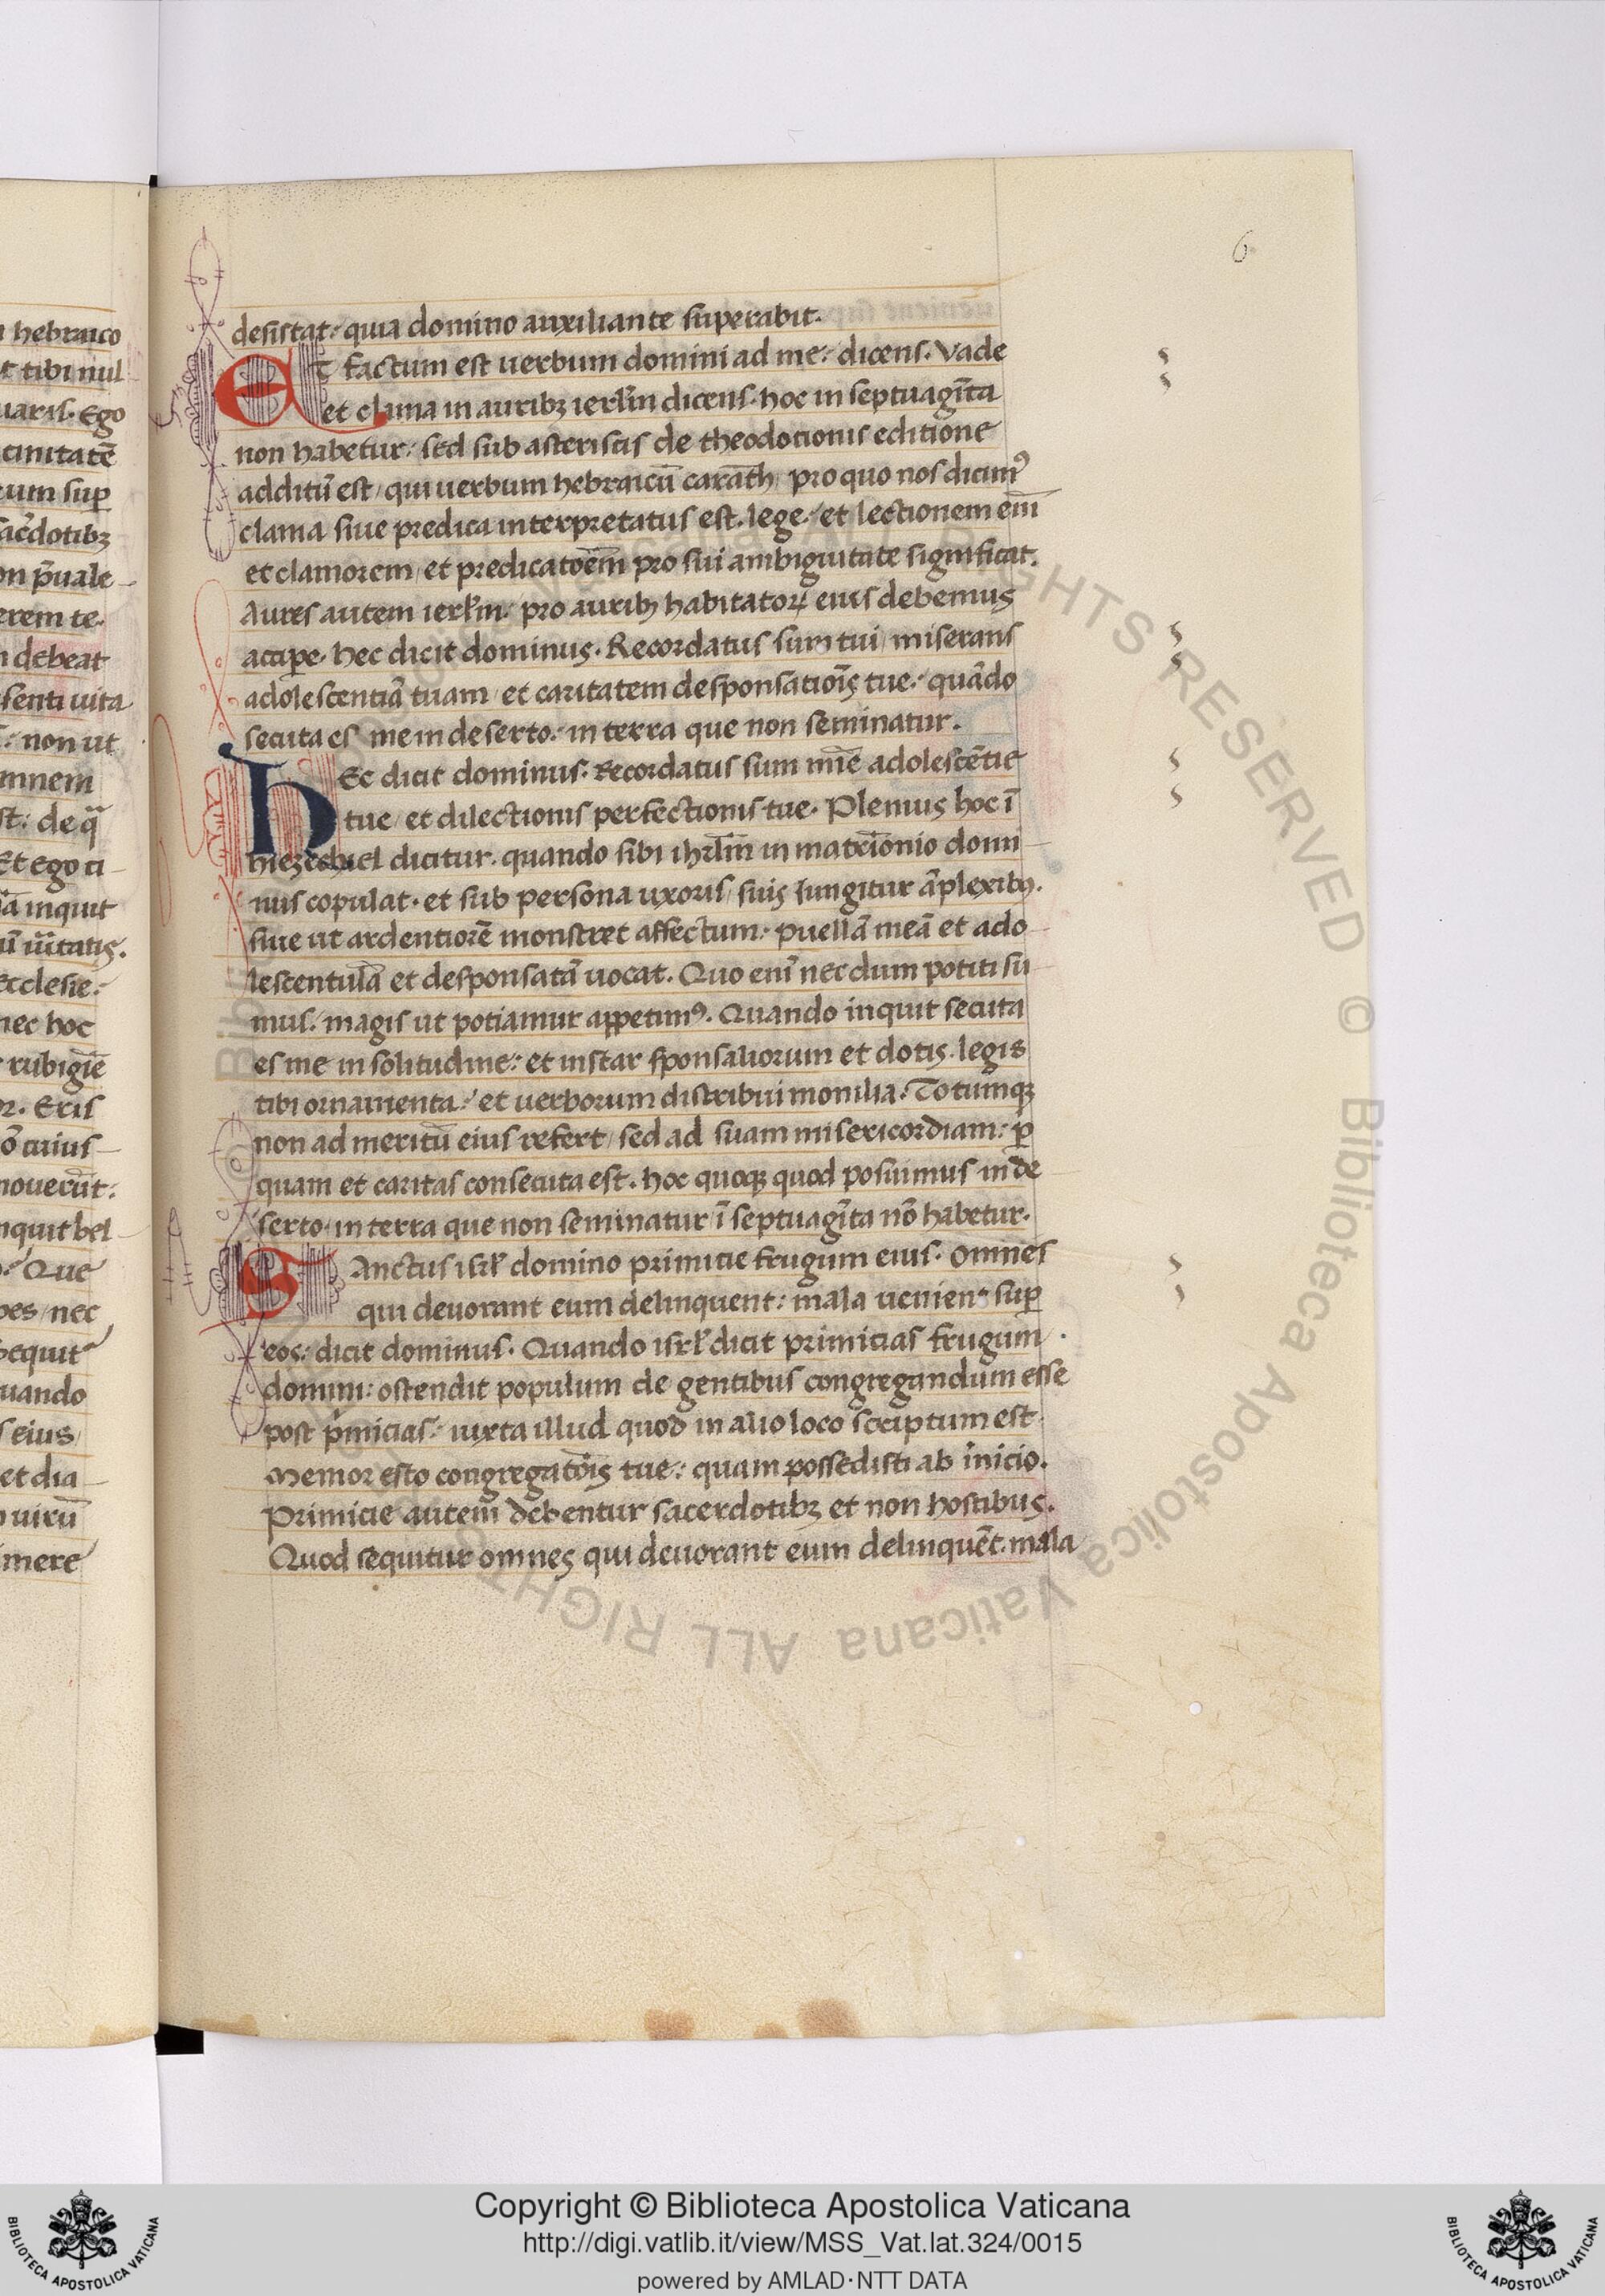 6
desistat: quia domino auxiliante superabit.
Et factum est uerbum domini ad me: dicens. Vade
et clama in auribꝫ ierl̄m dicens. hoc in septuagīta
non habetur: sed sub asteriscis de theodotionis editione
additū est / qui uerbum hebraicū carath / pro quo nos dicimꝰ
clama siue predica interpretatus est. lege: et lectionem eī
et clamorem / et predicatōēm pro sui ambiguitate significat.
Aures autem ierl̄m: pro auribꝫ habitatoꝝ eius debemus
accipe. hec dicit dominus. Recordatus sum tui / miserans
adolescentiā tuam / et caritatem desponsatiōīs tue: quādo
secuta es me in deserto: in terra que non seminatur.
HEc dicit dominus. Recordatus sum mīe adolescētie
tue / et dilectionis perfectionis tue. Plenius hoc ī
hiezechiel dicitur. quando sibi ihrl̄m in matrīonio domi-
nus copulat. et sub persona uxoris / suis iungitur āplexibꝰ.
siue ut ardentiorē monstret affectum: puellā meā et ado-
lescentulā et desponsatā uocat. Quo enī necdum potiti su-
mus. magis ut potiamur appetimꝰ. Quando inquit secuta
es me in solitudine: et instar sponsaliorum et dotis. legis
tibi ornamenta: et uerborum distribui monilia. Totumqꝫ
non ad meritū eius refert / sed ad suam misericordiam: ꝑ
quam et caritas consecuta est. hoc quoqꝫ quod posuimus in de
serto in terra que non seminatur / ī septuagīta nō habetur.
SAnctus isrl̄ domino primicie frugum eius. omnes
qui deuorant eum delinquent: mala uenient suꝑ
eos: dicit dominus. Quando isrl̄ dicit primicias frugum
domini: ostendit populum de gentibus congregandum esse
post pͥmicias: iuxta illud quod in alio loco scriptum est.
Memor esto congregatōīs tue: quam possedisti ab inicio.
Primicie autem debentur sacerdotibꝫ et non hostibus.
Quod sequitur omnes qui deuorant eum delinquēt. mala
Copyright © Biblioteca Apostolica Vaticana
http://digi.vatlib.it/view/MSS_Vat.lat.324/0015
powered by AMLAD·NTT DATA